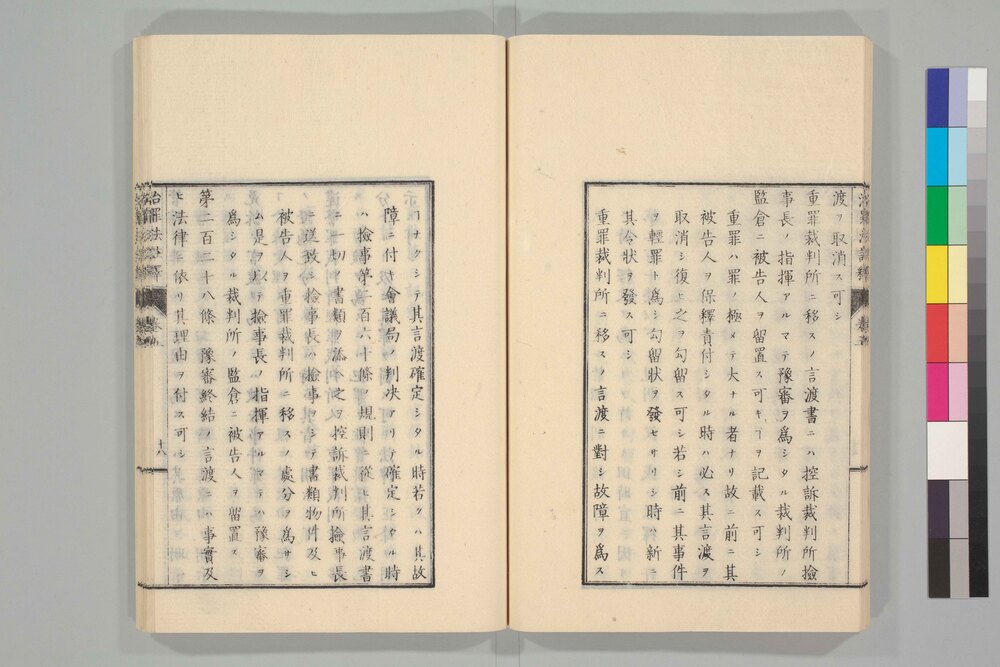 渡ヲ取消ス可シ
重罪裁判所ニ移スノ言渡書ニハ控訴裁判所撿
事長ノ指揮アルマテ豫審ヲ爲シタル裁判所ノ
監倉ニ被告人ヲ留置ス可キヿヲ記載ス可シ
重罪ハ罪ノ極メテ大ナル者ナリ故ニ前ニ其
被告人ヲ保釋責付シタル時ハ必ス其言渡ヲ
取消シ復ヒ之ヲ勾留ス可シ若シ前ニ其事件
ヲ輕罪ト爲シ勾留狀ヲ發セサリシ時ハ新ニ
其令狀ヲ發ス可シ
重罪裁判所ニ移スノ言渡ニ對シ故障ヲ爲ス
ヿナクシテ其言渡確定シタル時若クハ其故
障ニ付キ會議局ノ判决アリテ確定シタル時
ハ撿事第二百六十條ノ規則ニ從ヒ其言渡書
ニ一切ノ書類ヲ添ヘ之ヲ控訴裁判所撿事長
ニ送致シ撿事長ハ撿事ヲシテ書類物件及ヒ
被告人ヲ重罪裁判所ニ移スノ處分ヲ爲サシ
ム是ヲ以テ撿事長ノ指揮アルマテハ豫審ヲ
爲シタル裁判所ノ監倉ニ被告人ヲ留置ス
第二百二十八條 豫審終結ノ言渡ニハ事實及
ヒ法律ニ依リ其理由ヲ付ス可シ
治罪法
十八